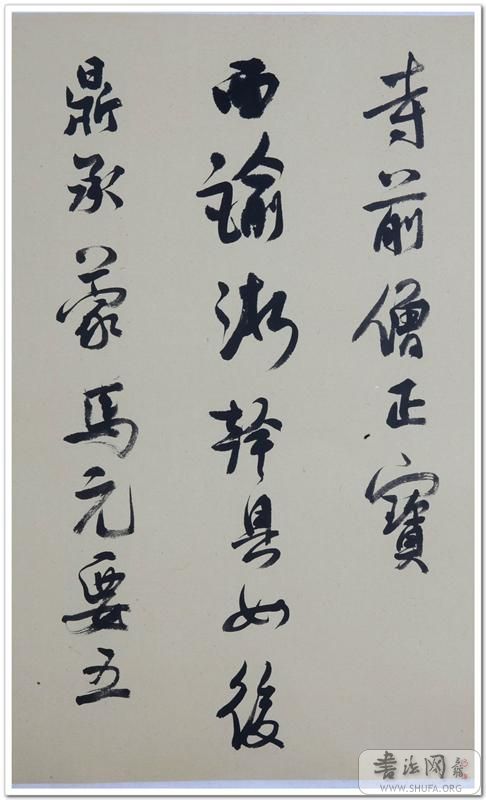 寺前僧正寶
面諭浙幹具如後
鼎承蒙馬元要五
書法网
WWW.SHUFA.ORG